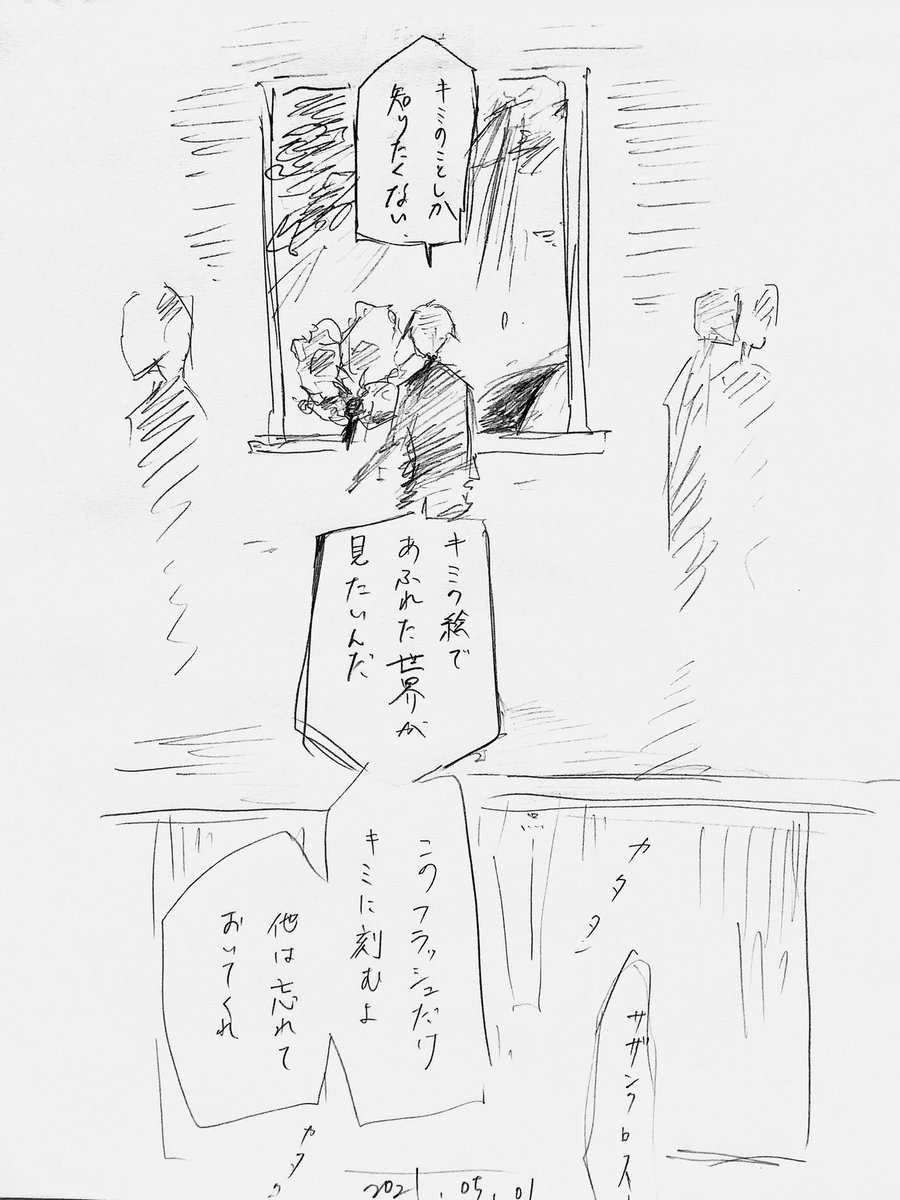 キミのことしか
知りたくない
キミの絵で
あふれた世界が
見たいんだ
このフラッシュだけ
キミに刻むよ
他は忘れて
おいてくれ
カタタン
サザンクロス
カタタ
2021.05.01